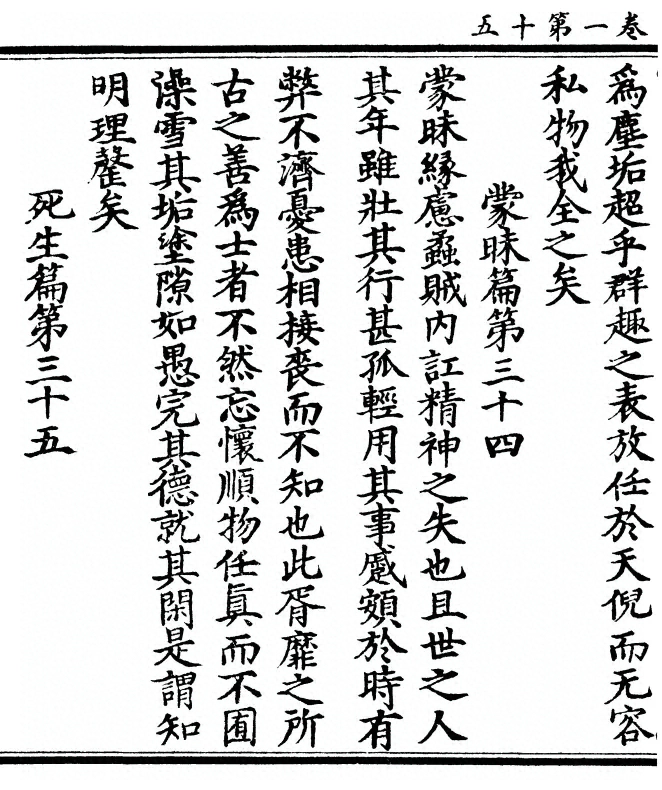 卷一第十五
爲塵垢超乎群趣之表放任於天倪而无容
私物我全之矣
蒙昧篇第三十四
蒙昧緣慮蟊賊内訌精神之失也且世之人
其年雖壯其行甚孤輕用其事蹙頞於時有
弊不濟憂患相接喪而不知也此胥靡之所
古之善爲士者不然忘懷順物任眞而不囿
澡雪其垢塗隙如愚完其德就其閑是謂知
明理薩矣
死生篇第三十五